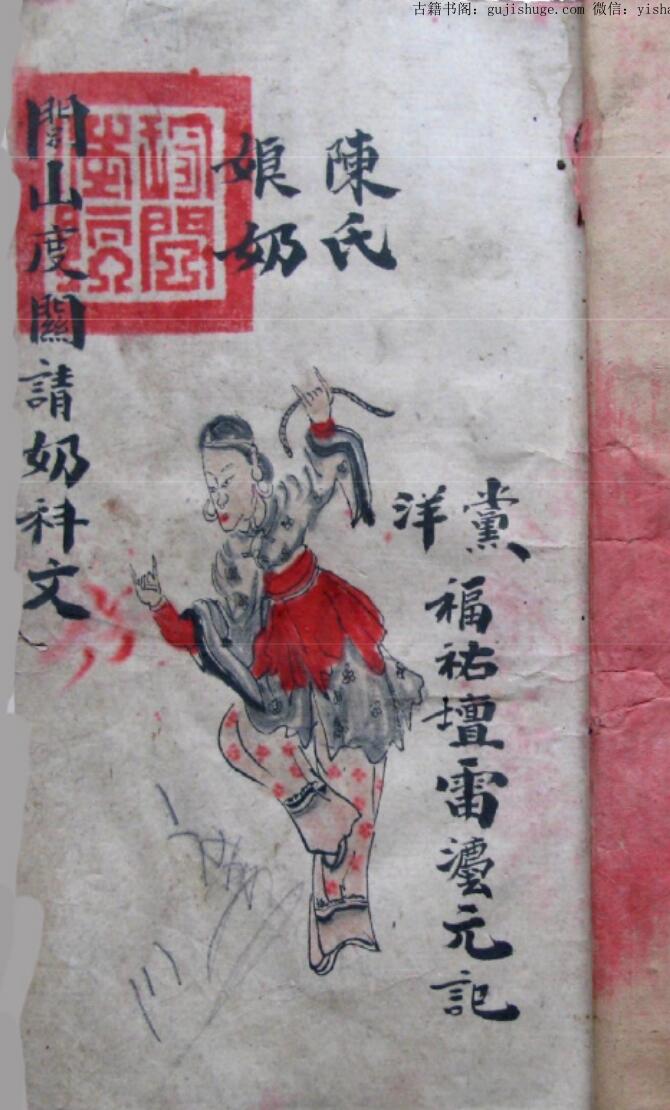 古籍书阁：gujishuge.com 微信：yisha
陳氏
娘奶
黨洋
福祐壇雷灋元記
閭山度關請奶科文